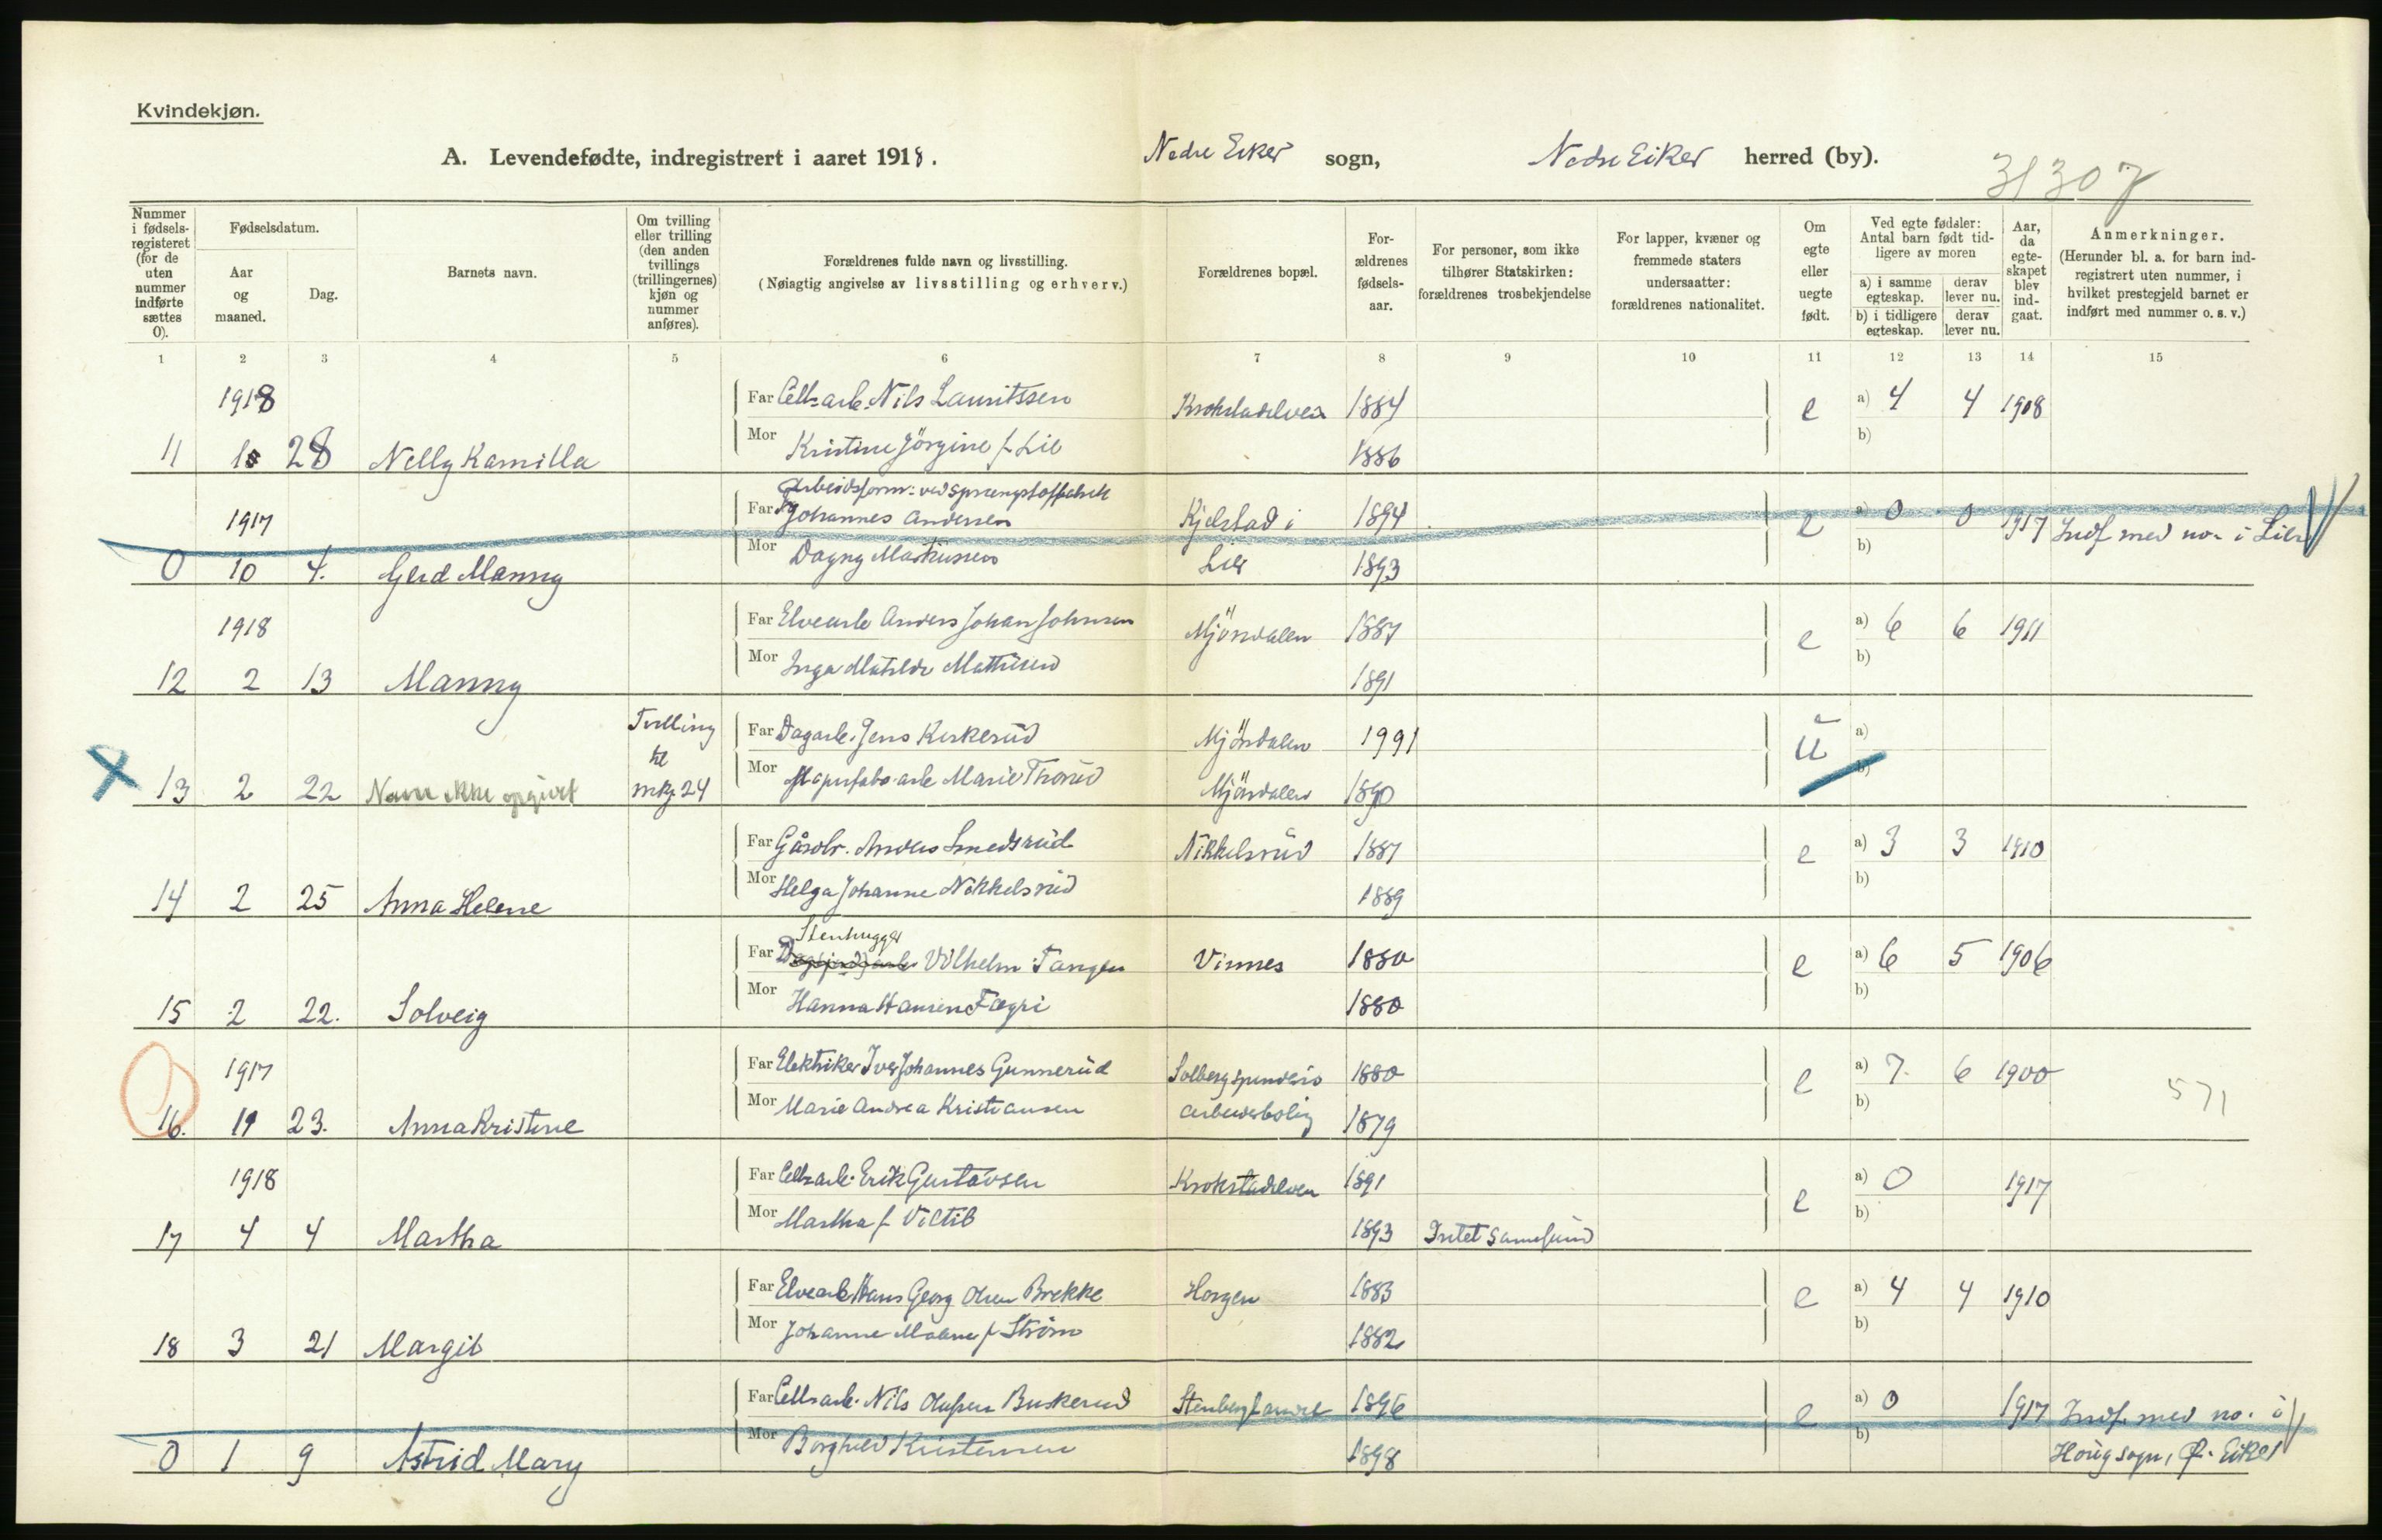 Kvindekjøn.
A. Levendefødte, indregistrert i aaret 1918. Nedre Eiker sogn, Nedre Eiker herred (by).
31307
Nummer i fødsels-registeret (for de uten nummer indførte sættes 0).
Fødselsdatum.
Aar og maaned.
Dag.
Barnets navn.
Om tvilling eller trilling (den anden tvillings (trillingernes) kjøn og nummer anføres).
Forældrenes fulde navn og livsstilling.
(Nøiagtig angivelse av livsstilling og erhverv.)
Forældrenes bopæl.
For-ældrenes fødsels-aar.
For personer, som ikke tilhører Statskirken: forældrenes trosbekjendelse
For lapper, kvæner og fremmede staters undersaatter: forældrenes nationalitet.
Om egte eller uegte født.
Ved egte fødsler: Antal barn født tid-ligere av moren
a) i samme egteskap. derav lever nu.
b) i tidligere egteskap. derav lever nu.
Aar, da egte-skapet blev ind-gaat.
Anmerkninger.
(Herunder bl. a. for barn ind-registrert uten nummer, i hvilket prestegjeld barnet er indført med nummer o. s. v.)
1 2 3 4 5 6 7 8 9 10 11 12 13 14 15
1918 Far Cell=arb. Nils Lauritssen Krokstadelven 1884 e a) 4 4 1908
11 1 28 Nelly Kamilla Mor Kristine Jörgine f. Lie 1886 b)
Arbeidsform: ved sprængstoffabrik
1917 Far Johannes Andersen Kjelstad i 1894 e a) 0 0 1917 Indf med no. i Lier
0 10 4. Gerd Manny Mor Dagny Markussen Lier 1893 b)
1918 Far Elvearb Anders Johan Johnsen Mjöndalen 1887 e a) 6 6 1911
12 2 13 Manny Mor Inga Matilde Mathisen 1891 b)
Tvilling til mkj. 24
Far Dagarb. Jens Kirkerud Mjöndalen 1991 u a)
13 2 22 Navn ikke opgivet Mor Papirfabr. arb Marie Thorud Mjöndalen 1890 b)
Far Gårdbr. Anders Smedsrud Nikkelsrud 1887 e a) 3 3 1910
14 2 25 Anna Helene Mor Helga Johanne Nikkelsrud 1889 b)
Stenhugger
Far Vilhelm Tangen Vinnes 1880 e a) 6 5 1906
15 2 22. Solveig Mor Hanna Hansen Fægri 1880 b)
1917 Far Elektriker Iver Johannes Gunnerud Solberg spinderis 1880 e a) 7. 6 1900 571
16. 11 23. Anna Kristine Mor Marie Andrea Kristiansen arbeiderbolig 1879 b)
1918 Far Cell=arb. Erik Gustavsen Krokstadelven 1891 e a) 0 1917
17 4 4 Martha Mor Martha f. 1893 Intet samfund b)
Far Elvearb Hans Georg Olsen Brekke Horgen 1883 e a) 4 4 1910
18 3 21 Margit Mor Johanne Malene f. Ström 1882 b)
Far Cell=arb. Nils Olufsen Buskerud 1896 e a) 0 1917 Indf. med no. i
0 1 9 Astrid Mary Mor Borghild Kristensen 1898 b) Houg sogn, Ø. Eiker